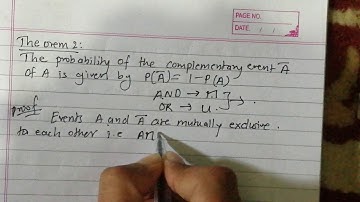 PAGE NO.
DATE / /
Theorem 2:
The probability of the complementary event A̅
of A is given by P(A̅) = 1 - P(A)
AND → ∩
OR → U.
Proof
Events A and A̅ are mutually exclusive.
to each other i.e A∩